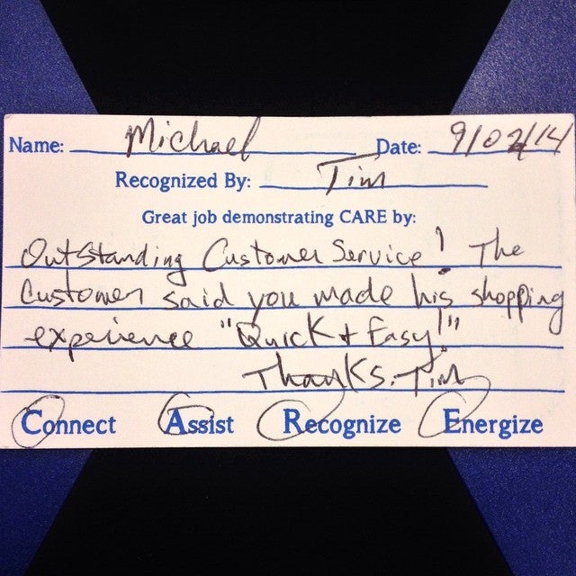 Name: Michael Date: 9/02/14
Recognized By: Tim
Great job demonstrating CARE by:
Outstanding Customer Service! The
Customer said you made his shopping
experience "Quick & Easy!"
Thanks. Tim
Connect Assist Recognize Energize